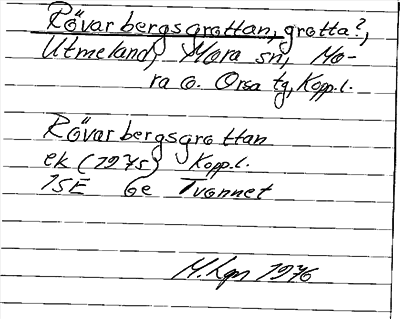 Rövarbergsgrottan, grotta?,
Utmeland, Mora sn, Mo-
ra o. Orsa tg, Kopp.l.
Rövarbergsgrottan
ek (1975) Kopp.l.
15E 6e Tvännet
M. Lgn 1976